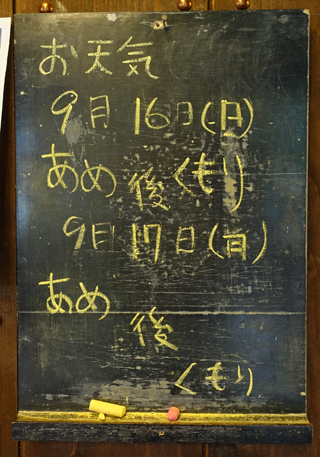 お天気
9月16日(日)
あめ後くもり
9月17日()
あめ
後
くもり